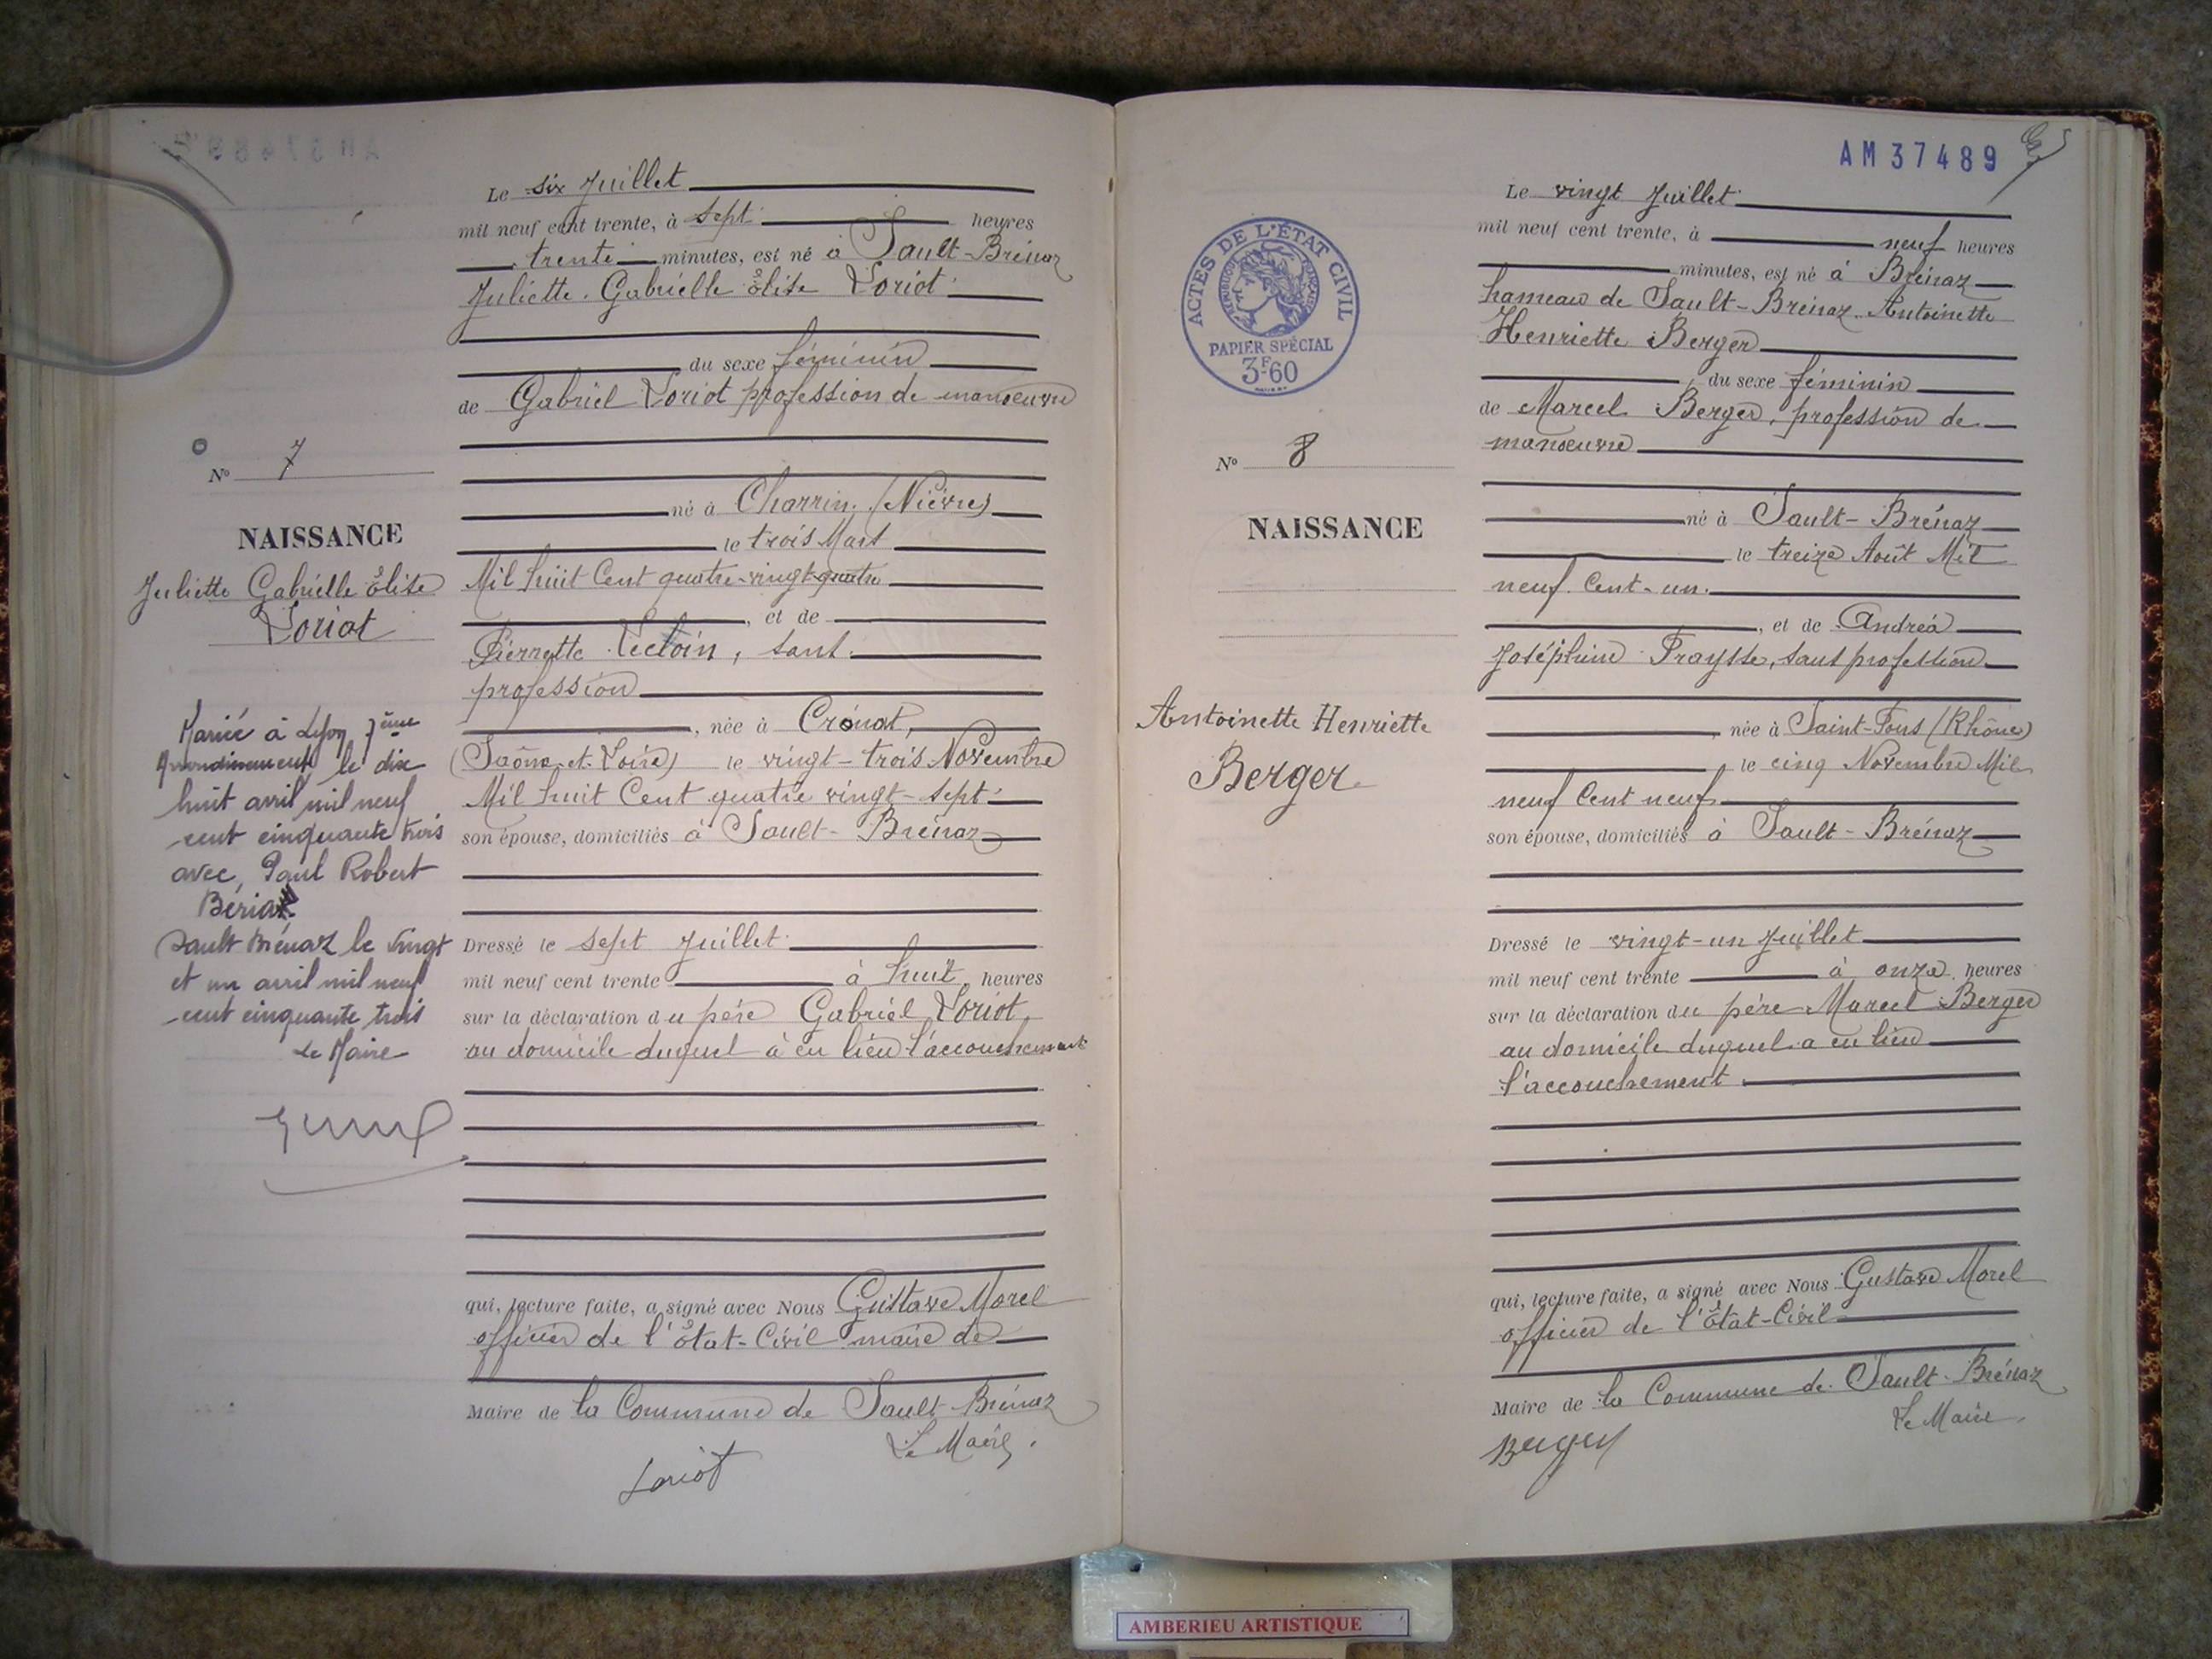 Le six Juillet
mil neuf cent trente, à sept heures
trente minutes, est né à Sault-Brénaz
Juliette Gabrielle Élise Loriot
du sexe féminin
de Gabriel Loriot profession de manoeuvre
N° 7
né à Charrin (Nièvre)
NAISSANCE
le trois Mars
Juliette Gabrielle Élise
Loriot
Mil huit Cent quatre-vingt-quatre
, et de
Pierrette, sans
profession
, née à Cronat,
(Saône-et-Loire) le vingt-trois Novembre
Mil huit Cent quatre vingt-sept
son épouse, domiciliés à Sault-Brénaz
Mariée à Lyon 7ème
Arrondissement, le dix
huit avril mil neuf
cent cinquante trois
avec, Paul Robert
Sault Brénaz le vingt
et un avril mil neuf
cent cinquante trois
Le Maire
Dressé le sept Juillet
mil neuf cent trente à huit heures
sur la déclaration du père Gabriel Loriot,
au domicile duquel à eu lieu l'accouchement
qui, lecture faite, a signé avec Nous Gustave Morel
officier de l'État-Civil maire de
Maire de la Commune de Sault-Brénaz
Le Maire.
Loriot
AM37489
Le vingt Juillet
mil neuf cent trente, à neuf heures
minutes, est né à Brénaz
hameau de Sault-Brénaz Antoinette
Henriette Berger
du sexe féminin
de Marcel Berger, profession de
manoeuvre
ACTES DE L'ÉTAT CIVIL
RÉPUBLIQUE FRANÇAISE
PAPIER SPÉCIAL
3F60
N° 8
NAISSANCE
né à Sault-Brénaz
le treize Août Mil
neuf Cent-un.
, et de Andréa
Joséphine Fraysse, sans profession
Antoinette Henriette
Berger
, née à Saint-Fons (Rhône)
, le cinq Novembre Mil
neuf Cent neuf
son épouse, domiciliés à Sault-Brénaz
Dressé le vingt-un Juillet
mil neuf cent trente à onze heures
sur la déclaration du père Marcel Berger
au domicile duquel a eu lieu
l'accouchement.
qui, lecture faite, a signé avec Nous Gustave Morel
officier de l'État-Civil
Maire de la Commune de Sault-Brénaz
Le Maire.
Berger
AMBERIEU ARTISTIQUE